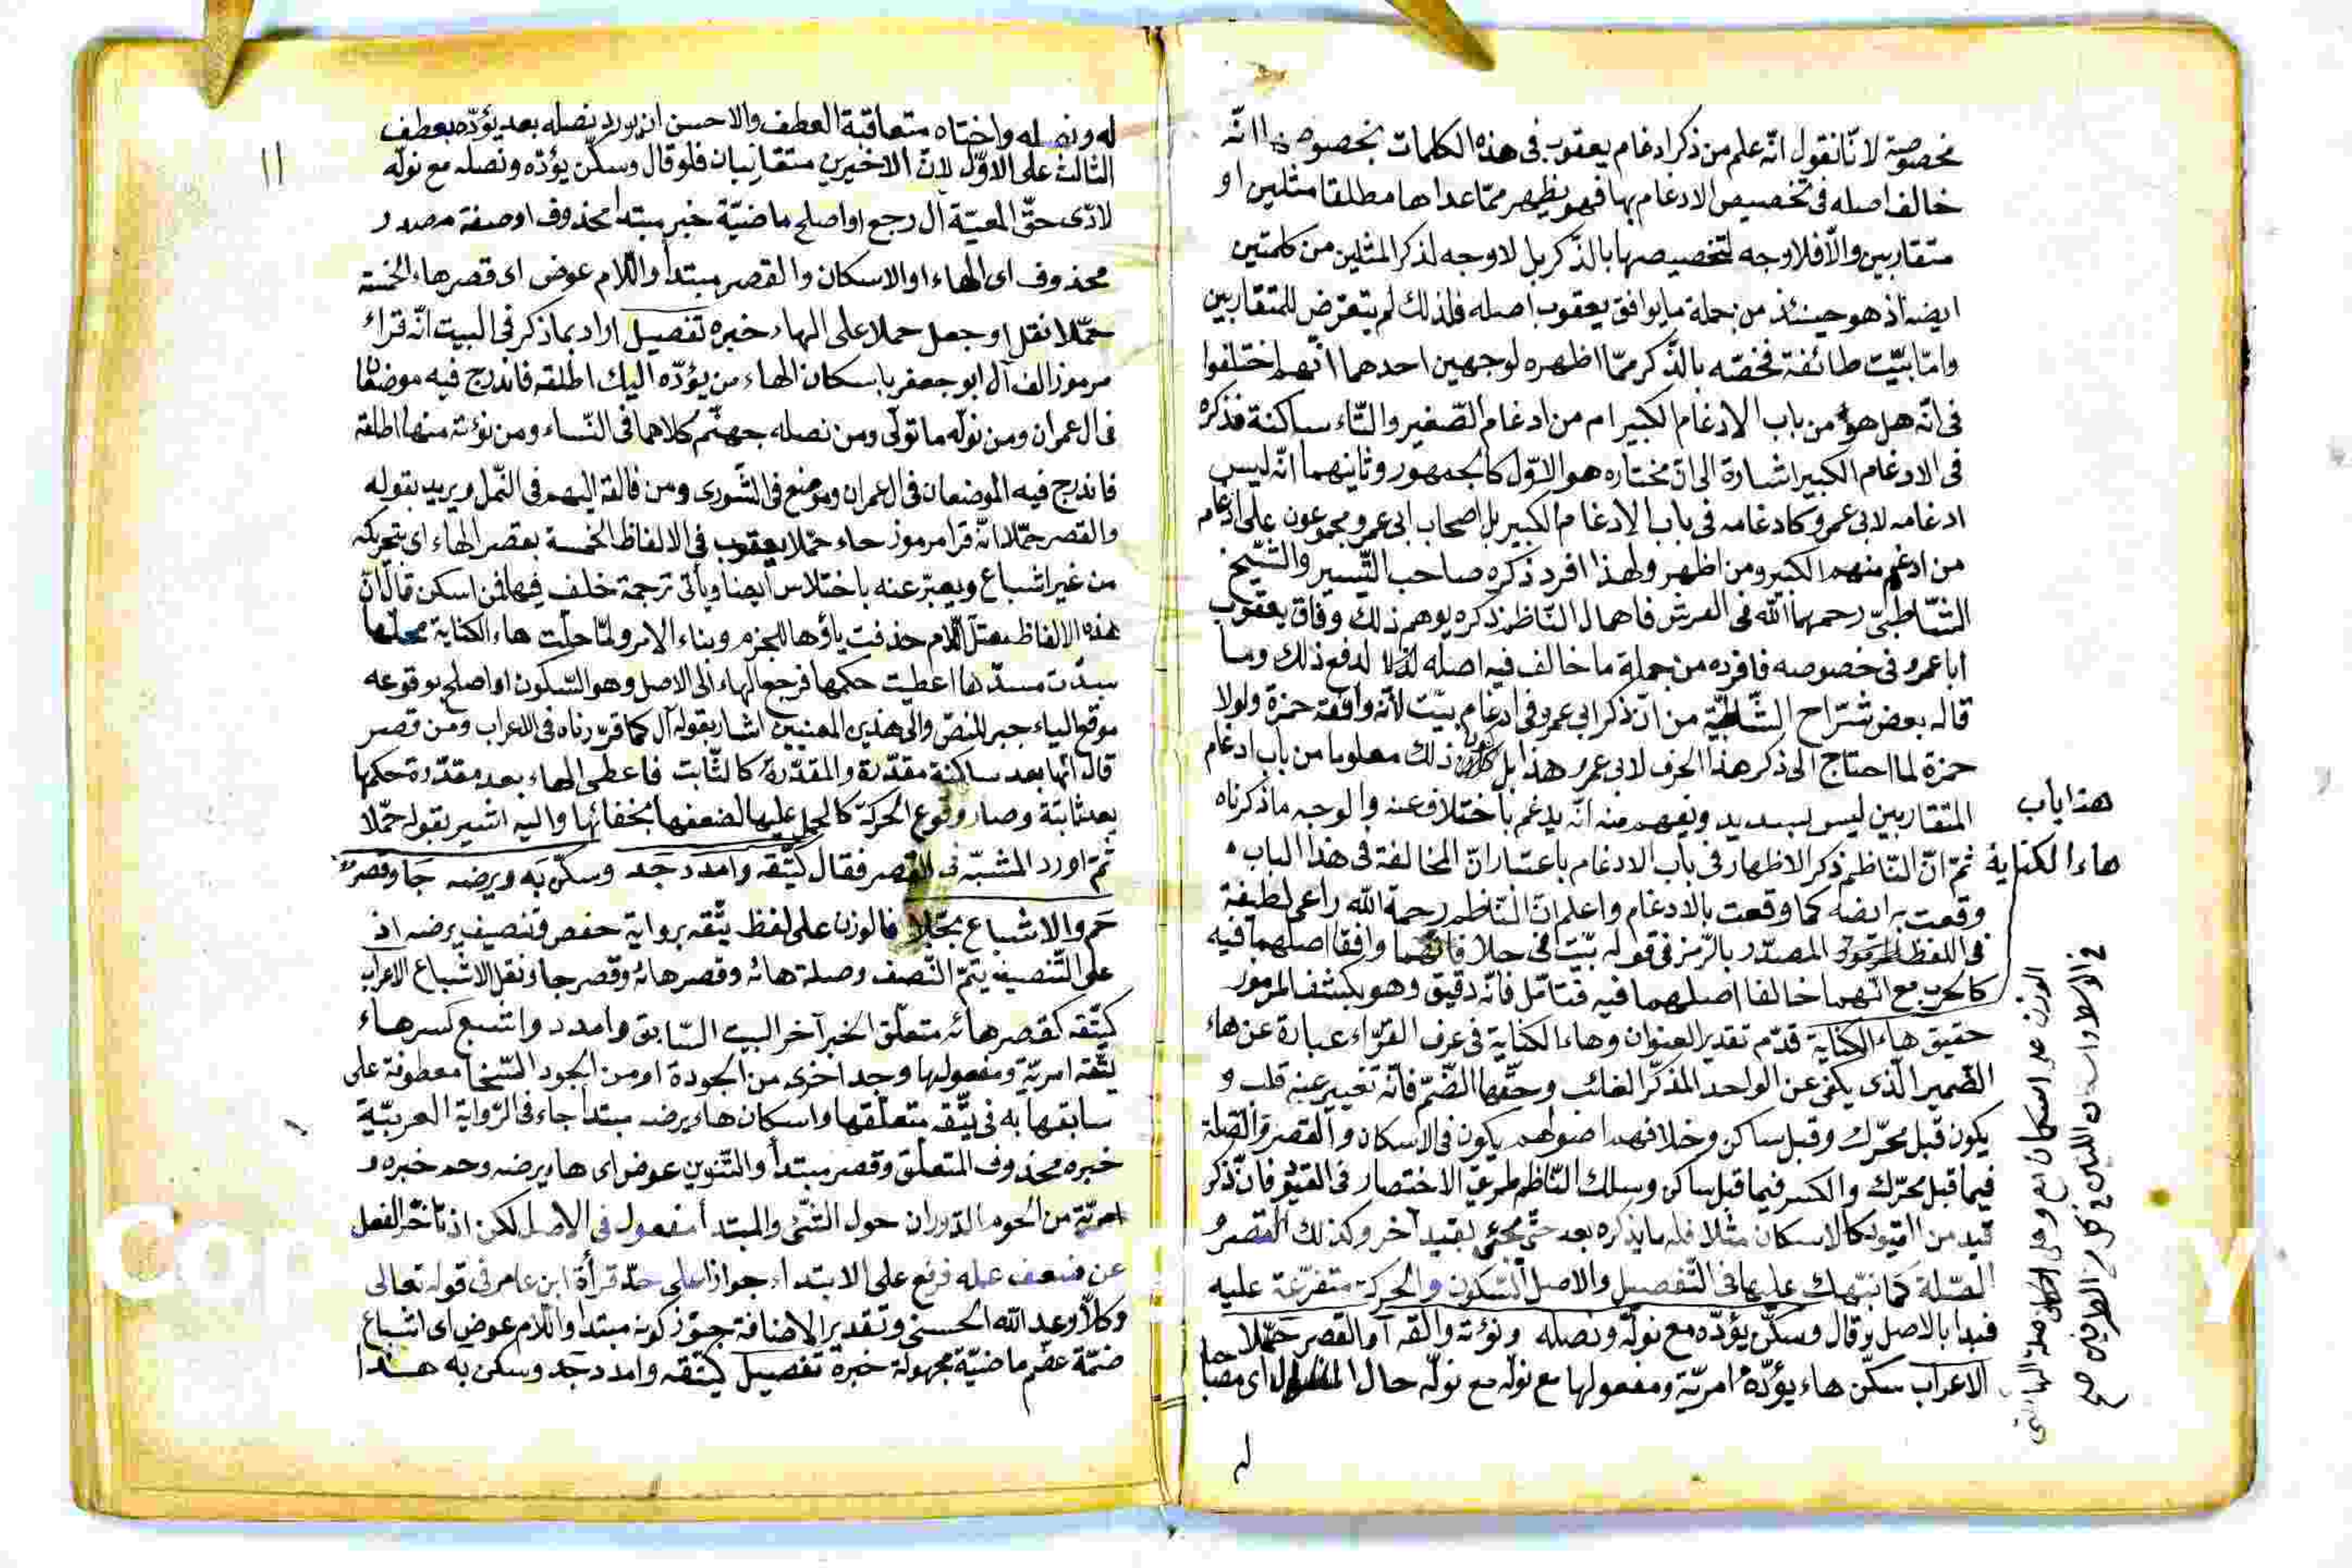 مخصوصة لانّا نقول انّه علم من ذكر ادغام يعقوب فى هذه الكلمات بخصوصها انّه
خالف اصله فى تخصيص الادغام بها فهو يظهر ممّا عداها مطلقا مثلين او
متقاربين والّا فلا وجه لتخصيصها بالذّكر بل لا وجه لذكر المثلين من كلمتين
ايضه اذ هو حينئذ من جملة ما يوافق يعقوب اصله فلذلك لم يتعرّض للمتقاربين
وامّا بيّت طائفة فخصّه بالذّكر ممّا اظهره لوجهين احدهما انّهم اختلفوا
فى انّه هل هو من باب الادغام الكبير ام من ادغام الصّغير والتّاء ساكنة فذكره
فى الادغام الكبير اشارة الى انّ مختاره هو الاوّل كالجمهور وثانيهما انّه ليس
ادغامه لابى عمرو كادغامه فى باب الادغام الكبير بل اصحاب ابى عمرو مجموعون على ادغام
من ادغم منهم الكبير ومن اظهر ولهذا افرد ذكره صاحب التّيسير والشّيخ
الشّاطبىّ رحمهما اللّه فى الفرش فاهمال النّاظم ذكره يوهم ذلك وفاق يعقوب
ابا عمرو فى خصوصه فافرده من جملة ما خالف فيه اصله لدفع ذلك وما
قاله بعض شرّاح الشّاطبيّة من انّ ذكر ابى عمرو فى ادغام بيّت لانّه وافقه حمزة ولولا
حمزة لما احتاج الى ذكر هذا الحرف لابى عمرو هذا بل كان ذلك معلوما من باب ادغام
المتقاربين ليس بسديد ويفهم منه انّه يدغم باختلاف عنه والوجه ما ذكرناه
هذا باب
هاء الكناية
ثمّ انّ النّاظم ذكر الاظهار فى باب الادغام باعتبار انّ المخالفة فى هذا الباب
وقعت به ايضه كما وقعت بالادغام واعلم انّ النّاظم رحمة اللّه راعى لطيفة
فى اللفظ المصدّر بالرّمز فى قوله بيّت فى حلا فانّهما وافقا اصلهما فيه
كالحرب مع انّهما خالفا اصلهما فيه فتامّل فانّه دقيق وهو بكشف المرموز
حقيق هاء الكناية قدّم تقدير العنوان وهاء الكناية فى عرف القرّاء عبارة عن هاء
الضّمير الّذى يكنى عن الواحد المذكّر الغائب وحقّها الضّمّ فانّه تغيير عنه قلب و
يكون قبل محرّك وقبل ساكن وخلافهم اصولهم يكون فى الاسكان والقصر والصّلة
فيما قبل محرّك والكسر فيما قبل ساكن وسلك النّاظم طريق الاختصار فى القيود فانّ ذكر
قيد من القيود كالاسكان مثلا فله ما يذكره بعد حتّى يجئ بقيد آخر وكذلك القصر و
الصّلة كما نبّهك عليها فى التّفصيل والاصل السّكون والحركة متفرّعة عليه
فبدا بالاصل وقال وسكّن يؤدّه مع نولّه ونصله ونؤته والقه آل والقصر حمّلا
الاعراب سكّن هاء يؤدّه امريّة ومفعولها مع نولّه مع نولّه حال اى مصاحبا
له
له ونصله واختاه متعاقبة العطف والاحسن ان يورد نصله بعد يؤدّه بعطف
الثالث على الاوّل لانّ الاخيرين متقاربان فلو قال وسكّن يؤدّه ونصله مع نولّه
١١
لادّى حقّ المعيّة آل رجع او اصلح ماضيّة خبر مبتدا محذوف او صفة مصدر
محذوف اى الهاء او الاسكان والقصر مبتدا واللّام عوض اى قصر هاء الخمسة
حمّلا نقل او جعل حملا على الهاء خبره تفصيل اراد بما ذكر فى البيت انّه قراء
مرموز الف آل ابو جعفر باسكان الهاء من يؤدّه اليك اطلقه فاندرج فيه موضعان
فى ال عمران ومن نولّه ما تولّى ومن نصله جهنّم كلاهما فى النّساء ومن نؤته منها اطلقه
فاندرج فيه الموضعان فى ال عمران وموضع فى الشّورى ومن فالقه اليهم فى النّمل ويريد بقوله
والقصر حمّلا انّه قرا مرموز حاء حمّلا يعقوب فى الالفاظ الخمسة بقصر الهاء اى بتحريكه
من غير اشباع ويعبّر عنه باختلاس ايضا وياتى ترجمة خلف فيها فمن اسكن قال انّ
هذه الالفاظ معتلّ اللّام حذفت ياؤها للجزم وبناء الامر ولمّا حلّت هاء الكناية محلّها
سدّت مسدّها اعطيت حكمها فرجع الهاء الى الاصل وهو السّكون او اصلح بوقوعه
موقع الياء جبر النقص والى هذين المعنيين اشار بقوله آل كما قرّرناه فى الاعراب ومن قصر
قال انّها بعد ساكنة مقدّرة والمقدّرة كالثّابت فاعطى الهاء بعد مقدّرة حكمها
بعد ثابتة وصار وقوع الحركة كالحمل عليها لضعفها بخفائها واليه اشير بقوله حمّلا
ثمّ اورد المشبّه فى القصر فقال كيتّقه وامدد جد وسكّن به ويرضه جا وقصر
حم والاشباع بجّلا فالوزن على لفظ يتّقه برواية حفص وتنصيف يرضه اذ
على التّنصيف يتمّ النّصف وصلة هائه وقصر هائه وقصر جا ونقل الاشباع الاعراب
كيتّقه كقصر هائه متعلّق الخبر آخر البيت السّابق وامدد واتسع كسر هاء
يتّقه امريّة ومفعولها وجد اخرى من الجودة او من الجود السّخا معطوفة على
سابقها به فى يتّقه متعلّقها واسكان هاء يرضه مبتدا جاء فى الرّواية العربيّة
خبره محذوف المتعلّق وقصر مبتدا والتّنوين عوض اى ها يرضه وحم خبره و
امريّة من الحوم الدّوران حول الشّئ والمبتدا مفعول فى الاصل لكن اذ تاخّر الفعل
عن ضعف عمله فرفع على الابتداء جوازا على حدّ قراة ابن عامر فى قوله تعالى
وكلّا وعد اللّه الحسنى وتقدير الاضافة جوّز كونه مبتدا واللّام عوض اى اشباع
ضمّة ماضيّة مجهولة خبره تفصيل كيتّقه وامدد جد وسكن به هذا